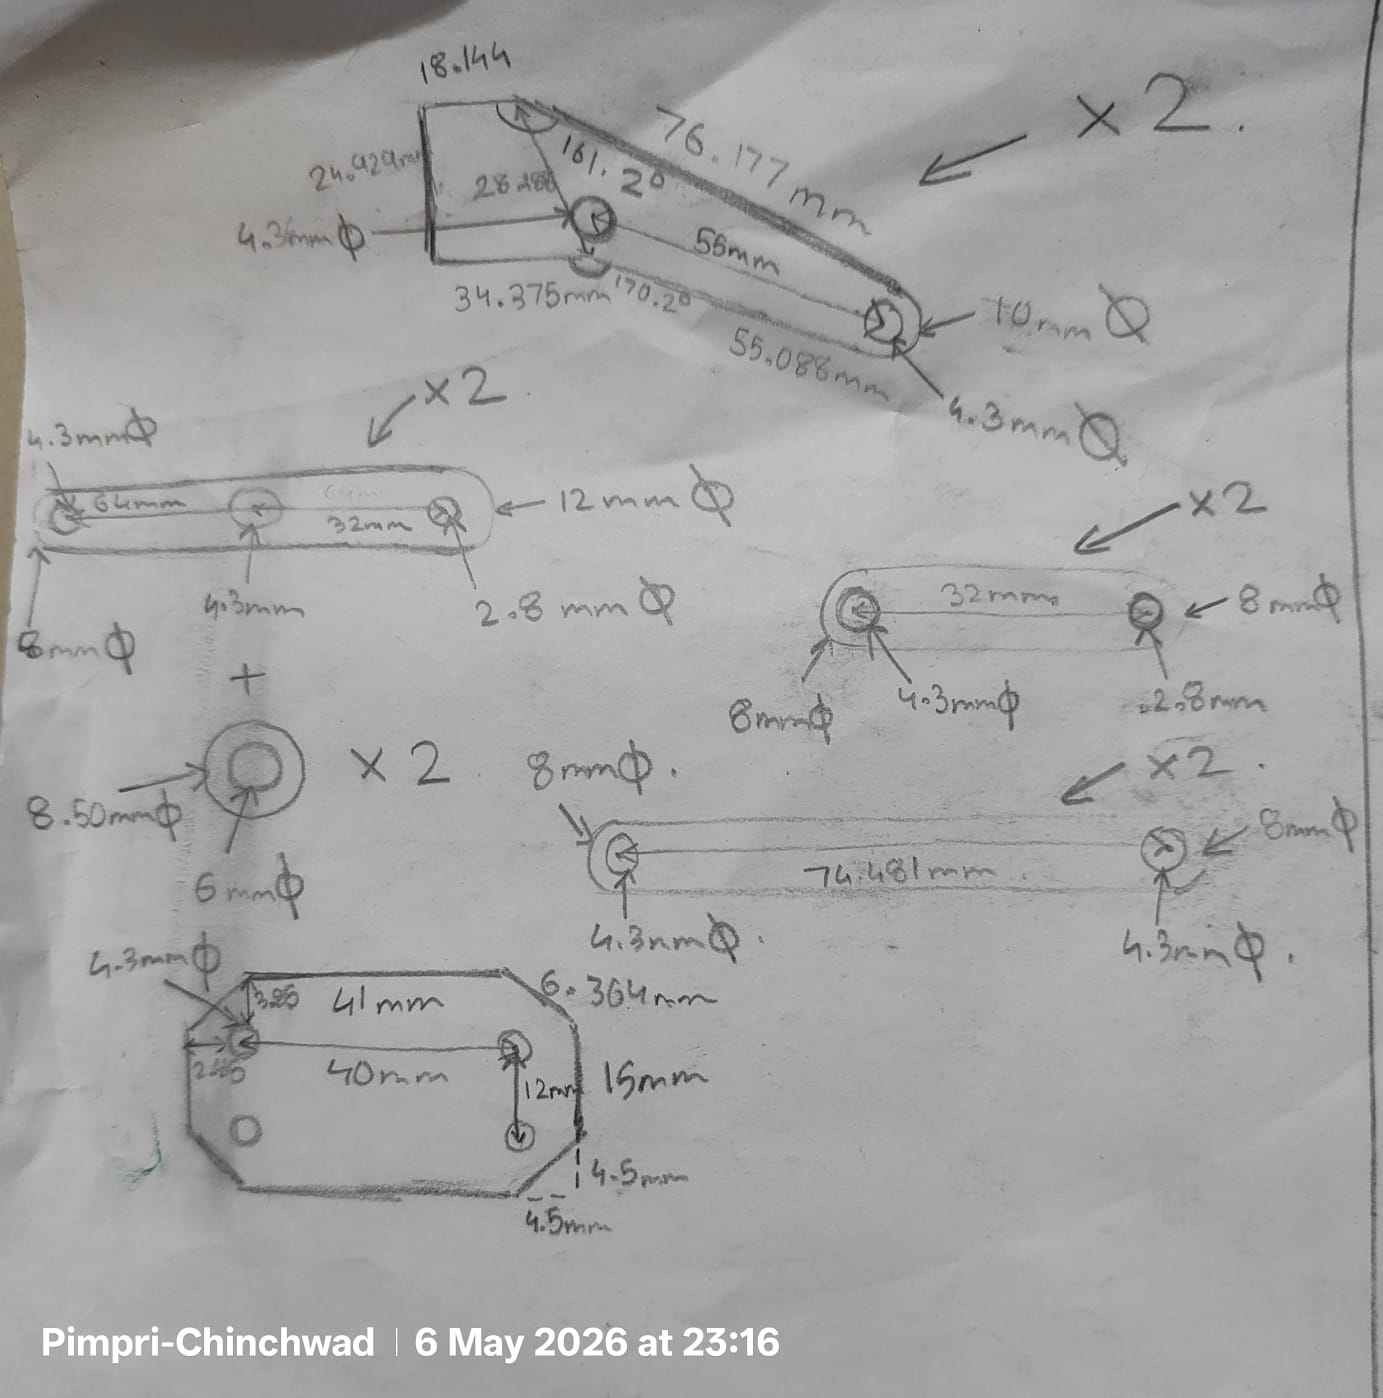 18.144
76.177 mm
x 2.
24.929mm
161.2°
28.
4.3mm ϕ
55mm
34.375mm
170.2°
10mm Ø
55.088mm
4.3mm Ø
x2
4.3mmϕ
64mm
32mm
12mm ϕ
4.3mm
2.8 mm ϕ
8mmϕ
x2
32mm
8mmϕ
8mmϕ
4.3mmϕ
2.8mm
+
x 2
8.50mmϕ
6mmϕ
8mmϕ.
x2.
8mmϕ
74.481mm.
4.3mmϕ.
4.3mmϕ.
4.3mmϕ
41mm
6.364mm
40mm
12mm
15mm
4.5mm
4.5mm
Pimpri-Chinchwad | 6 May 2026 at 23:16